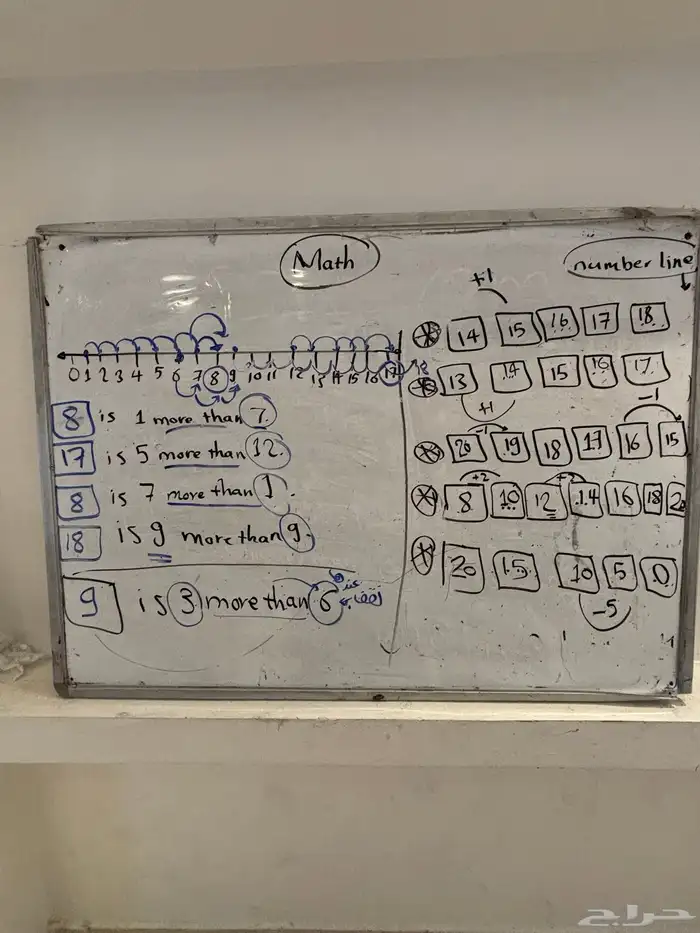 Math
number line
0 1 2 3 4 5 6 7 8 9 10 11 12 13 14 15 16 17 18
8 is 1 more than 7.
17 is 5 more than 12.
8 is 7 more than 1.
18 is 9 more than 9.
9 is 3 more than 6
+1
14 15 16 17 18
13 14 15 16 17
+1
-1
-1
20 19 18 17 16 15
+2 +2
8 10 12 14 16 18 2
20 15 10 5 0
-5
حراج